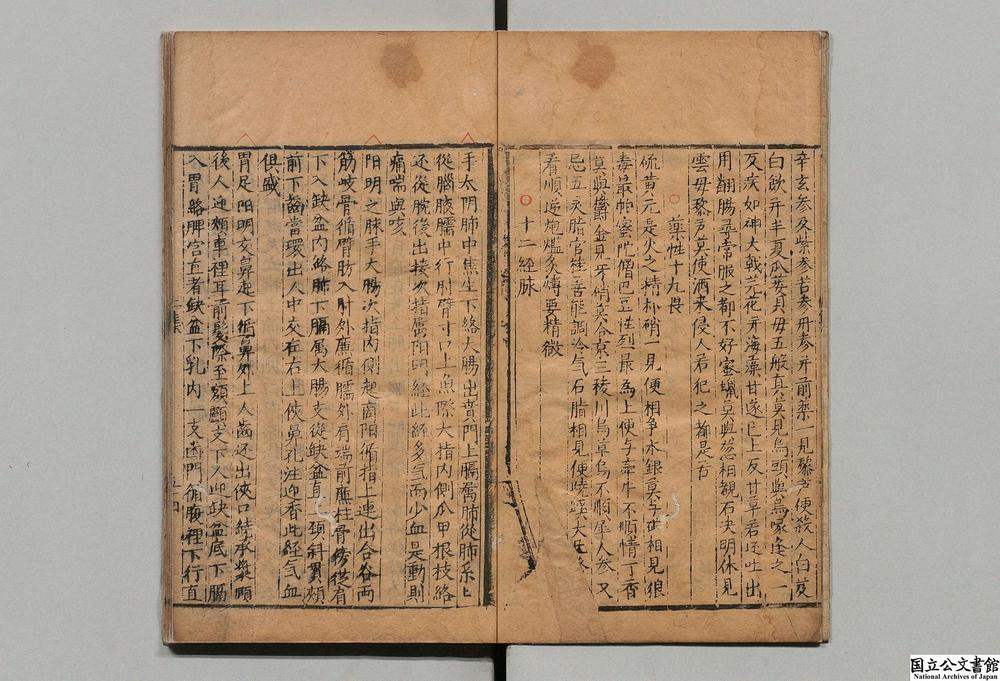 辛玄参及紫参苦参丹参并前药一見藜芦便殺人白芨
白歛并半夏瓜蒌貝毋五般真莫見烏頭與烏喙逢之一
反疾如神大戟芫花并海藻甘遂已上反甘草若还吐出
用翻腸尋常服之都不好蜜蠟莫與葱相覩石决明休見
雲毋藜芦莫使酒来侵人若犯之都是苦
藥性十九畏
硫黄元是火之精朴硝一見便相争水銀莫与砒相見狼
毒最怕蜜陀僧巴豆性列最為上便与牽牛不順情丁香
莫與欝金見牙硝莫合京三稜川烏草烏不順犀人参又
忌五灵脂官桂善能調冷气石脂相見便
看順逆炮爁炙煿要精微
十二経脉
手太阴肺中焦生下絡大腸出賁門上膈属肺從肺系
從腦腋臑中行肘臂寸口上魚際大指内側瓜甲根枝絡
还從腕後出接次指属阳明經此經多气而少血是動則
痛喘與咳
阳明之脉手大腸次指内側起商阳循指上連出合谷両
筋岐骨循臂肪入肘外廉循臑外肩端前廉柱骨傍従肩
下入缺盆内絡肺下膈属大腸支從缺盆直上頚斜貫頰
前下齒當環出人中交左右上俠鼻孔注迎香此經气血
俱盛
胃足阳明交鼻起下循鼻外上人齒还出俠口繞承漿頤
後人迎頰車裡耳前髪際至額顱支下人迎缺盆底下膈
入胃絡脾宫直者缺盆下乳内一支幽門循腹裡下行直
国立公文書館
National Archives of Japan